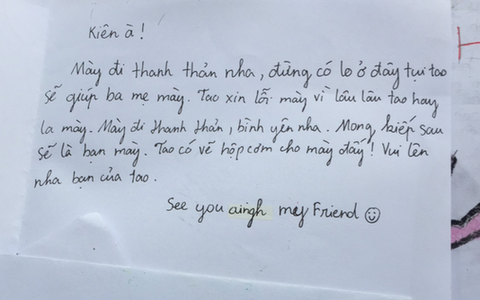 Kiên à !
Mày đi thanh thản nha, đừng có lo ở đây tụi tao
sẽ giúp ba mẹ mày. Tao xin lỗi mày vì lâu lâu tao hay
la mày. Mày đi thanh thản, bình yên nha. Mong kiếp sau
sẽ là bạn mày. Tao có vẽ hộp cơm cho mày đấy! Vui lên
nha bạn của tao.
See you aingh my Friend ☺